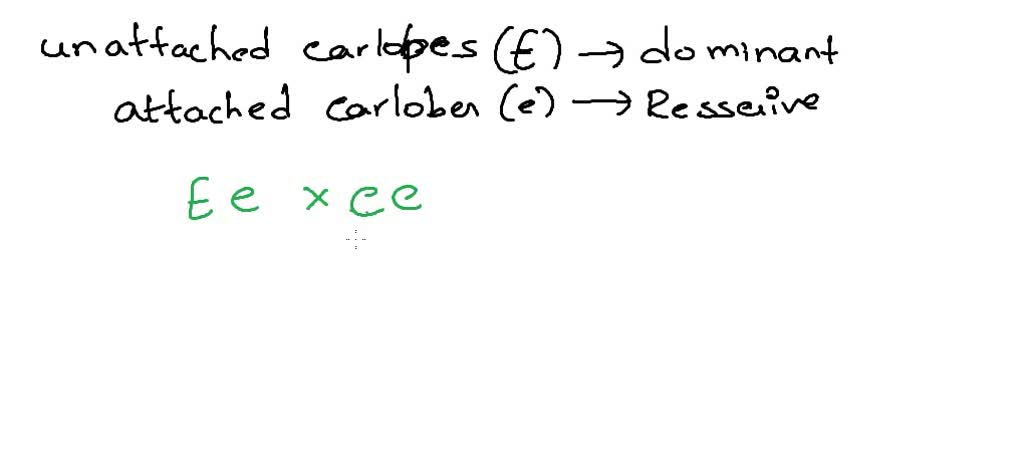 unattached earlopes (E) → dominant
attached earlober (e) → Resserive
Ee × ee